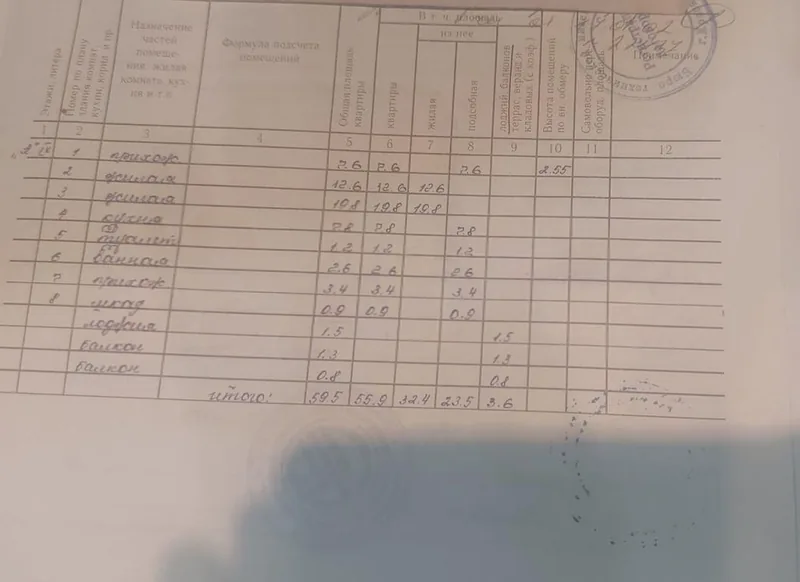 В т. ч. площадь
из нее
Этажи, литера
Номер по плану здания комнат кухни, корид. и пр.
Назначение частей помещения: жилая комната, кухни и т.п.
Формула подсчета помещений
Общая площадь квартиры
квартиры
жилая
подсобная
лоджий, балконов террас, веранд и кладовых (с коэф.)
Высота помещений по вн. обмеру
Примечания
1 2 3 4 5 6 7 8 9 10 11 12
1 прихож 7.6 7.6 7.6 2.55
2 жилая 12.6 12.6 12.6
3 жилая 19.8 19.8 19.8
4 кухня 7.8 7.8 7.8
5 туалет 1.2 1.2 1.2
6 ванная 2.6 2.6 2.6
7 прихож 3.4 3.4 3.4
8 шкаф 0.9 0.9 0.9
лоджия 1.5 1.5
балкон 1.3 1.3
балкон 0.8 0.8
итого: 59.5 55.9 32.4 23.5 3.6